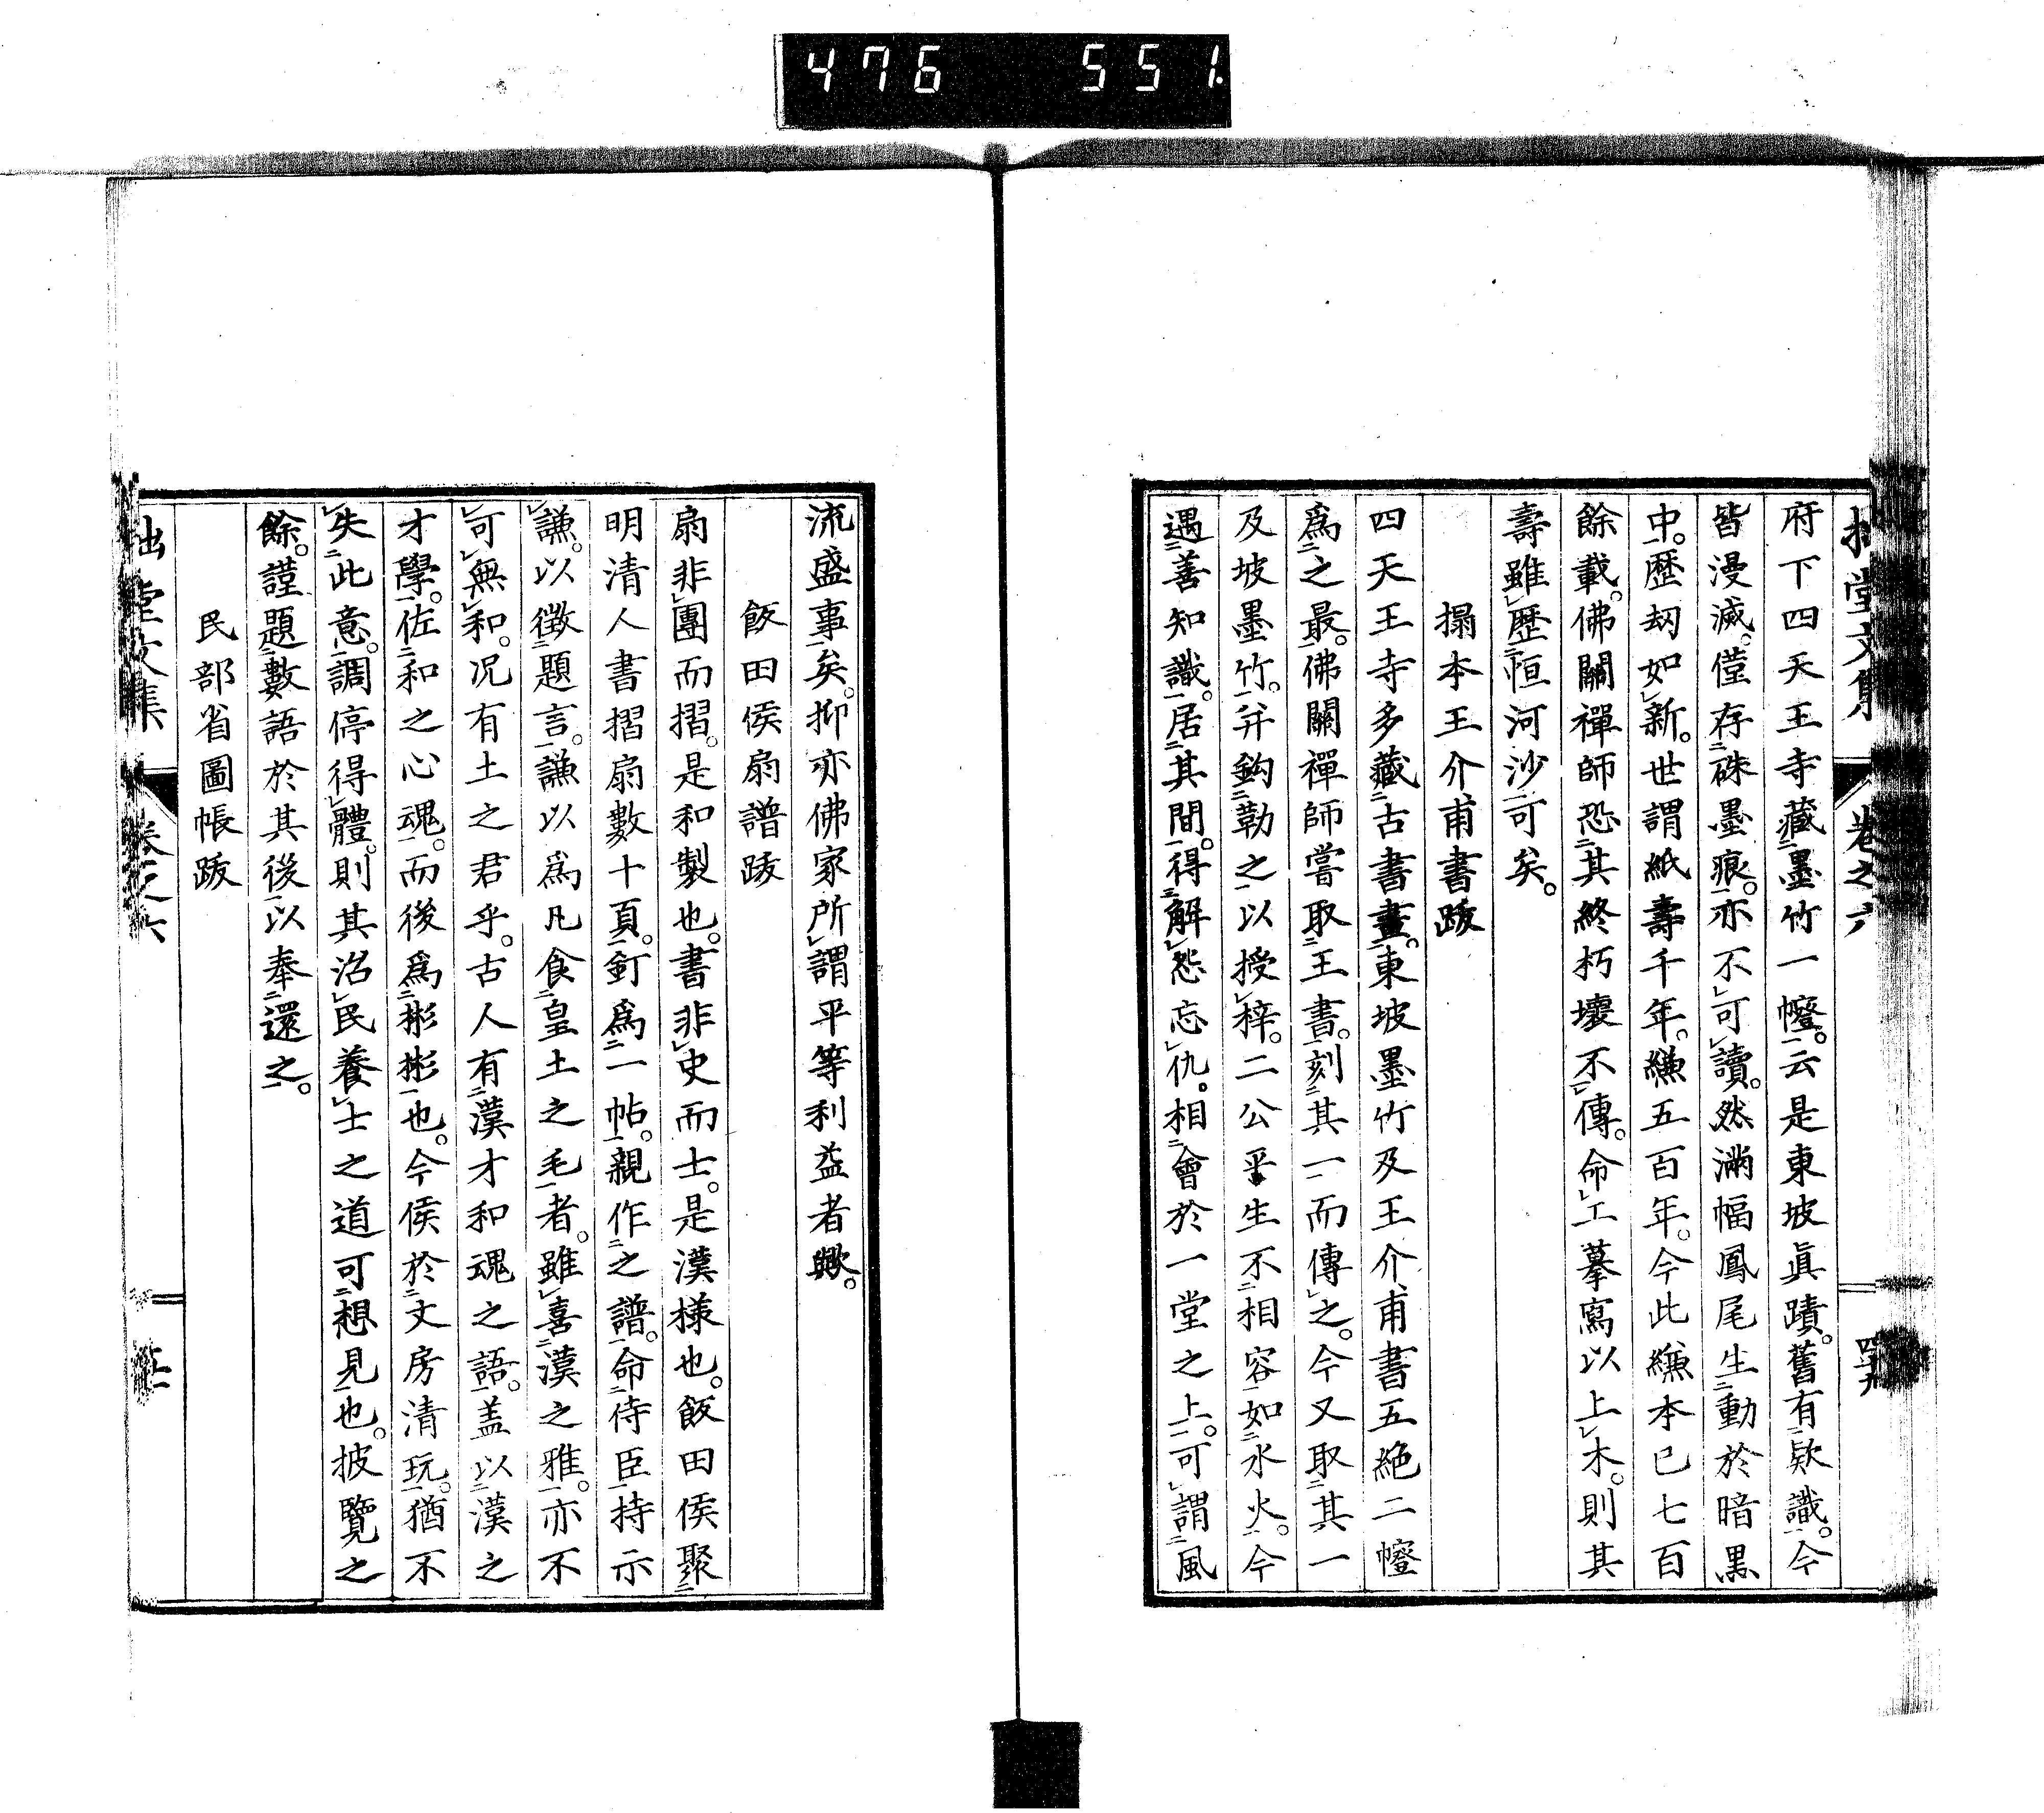 476 551.
拙堂文集 卷之六 四十九
府下四天王寺藏墨竹一㡧。云是東坡眞蹟。舊有欵識。今
皆漫滅。僅存硃墨痕。亦不可讀。然滿幅鳳尾生動於暗黒
中。歴劫如新。世謂紙壽千年。縑五百年。今此縑本已七百
餘載。佛關禪師恐其終朽壞不傳。命工摹寫以上木。則其
壽雖歴恒河沙可矣。
搨本王介甫書跋
四天王寺多藏古書畫。東坡墨竹及王介甫書五絶二㡧
爲之最。佛關禪師嘗取王書。刻其一而傳之。今又取其一
及坡墨竹。幷鈎勒之以授梓。二公平生不相容如水火。今
遇善知識。居其間。得解怨忘仇。相會於一堂之上。可謂風
流盛事矣。抑亦佛家所謂平等利益者歟。
飯田侯扇譜跋
扇非團而摺。是和製也。書非史而士。是漢樣也。飯田侯聚
明清人書摺扇數十頁。釘爲一帖。親作之譜。命侍臣持示
謙。以徵題言。謙以爲凡食皇土之毛者。雖喜漢之雅。亦不
可無和。况有土之君乎。古人有漢才和魂之語。盖以漢之
才學。佐和之心魂。而後爲彬彬也。今侯於文房清玩。猶不
失此意。調停得體。則其沼民養士之道可想見也。披覽之
餘。謹題數語於其後以奉還之。
民部省圖帳跋
拙堂文集 卷之六